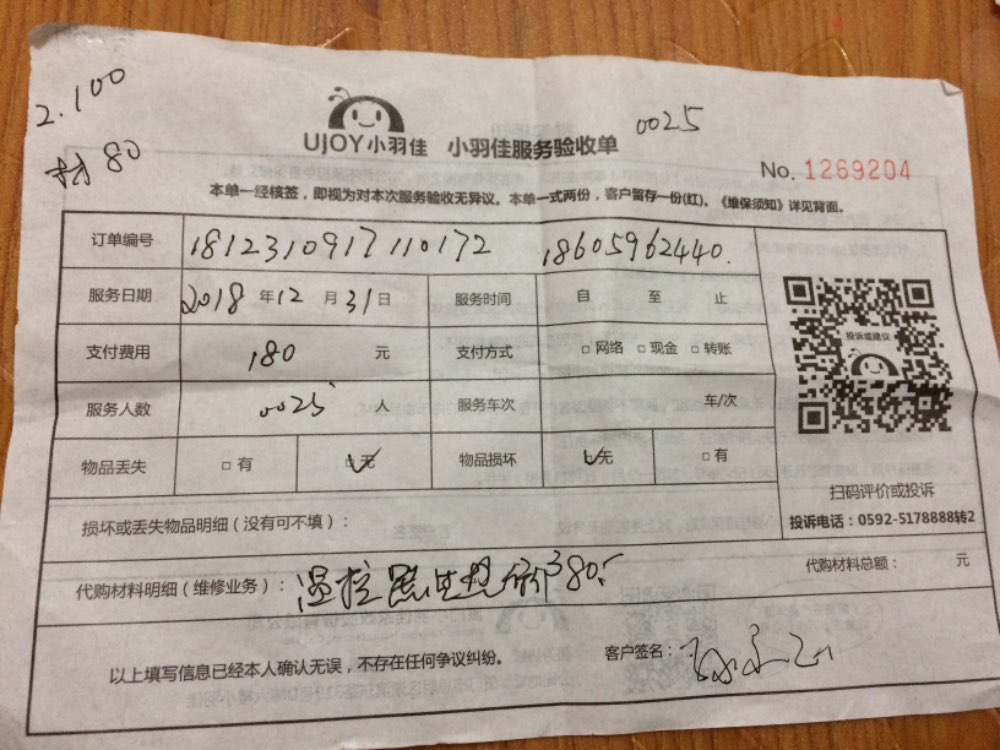 2.100
材 80
0025
UJOY小羽佳 小羽佳服务验收单
No. 1269204
本单一经核签，即视为对本次服务验收无异议。本单一式两份，客户留存一份(红)、《维保须知》详见背面。
订单编号 1812310917110172 18605962440.
服务日期 2018 年 12 月 31 日 服务时间 自 至 止
支付费用 180 元 支付方式 □ 网络 □ 现金 □ 转账
投诉或建议
服务人数 0025 人 服务车次 车/次
物品丢失 □ 有 □ 无 物品损坏 □ 无 □ 有
扫码评价或投诉
投诉电话：0592-5178888转2
损坏或丢失物品明细（没有可不填）：
代购材料明细（维修业务）：温控器 80
代购材料总额： 元
以上填写信息已经本人确认无误，不存在任何争议纠纷。
客户签名：